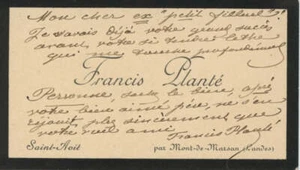 Mon cher ex "petit filleul"!
Je savais déjà votre grand succès
avant votre si tendre lettre
qui me touche profondément
Francis Planté
Personne sachez le bien, après
votre bien aimé père, ne s'en
réjouit plus sincèrement que
votre vieil ami
Francis Planté
Saint-Avit
par Mont-de-Marsan (Landes)